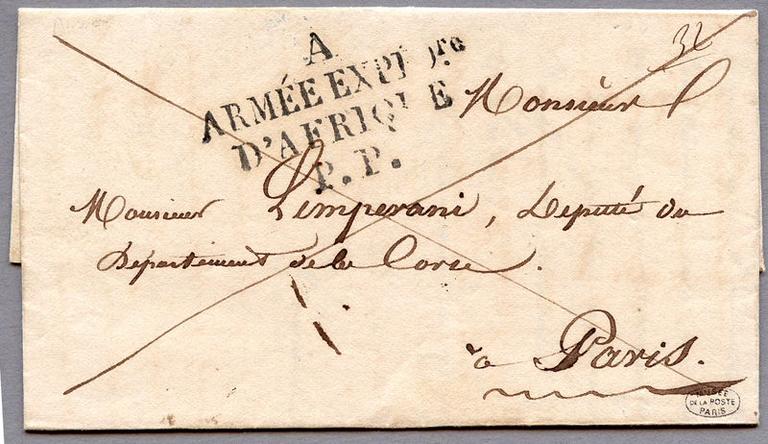 32
A
ARMÉE EXPÉDre
D'AFRIQUE
P.P.
Monsieur
Monsieur Limperani, Député du
Département de la Corse.
à Paris.
MUSÉE
DE LA POSTE
PARIS